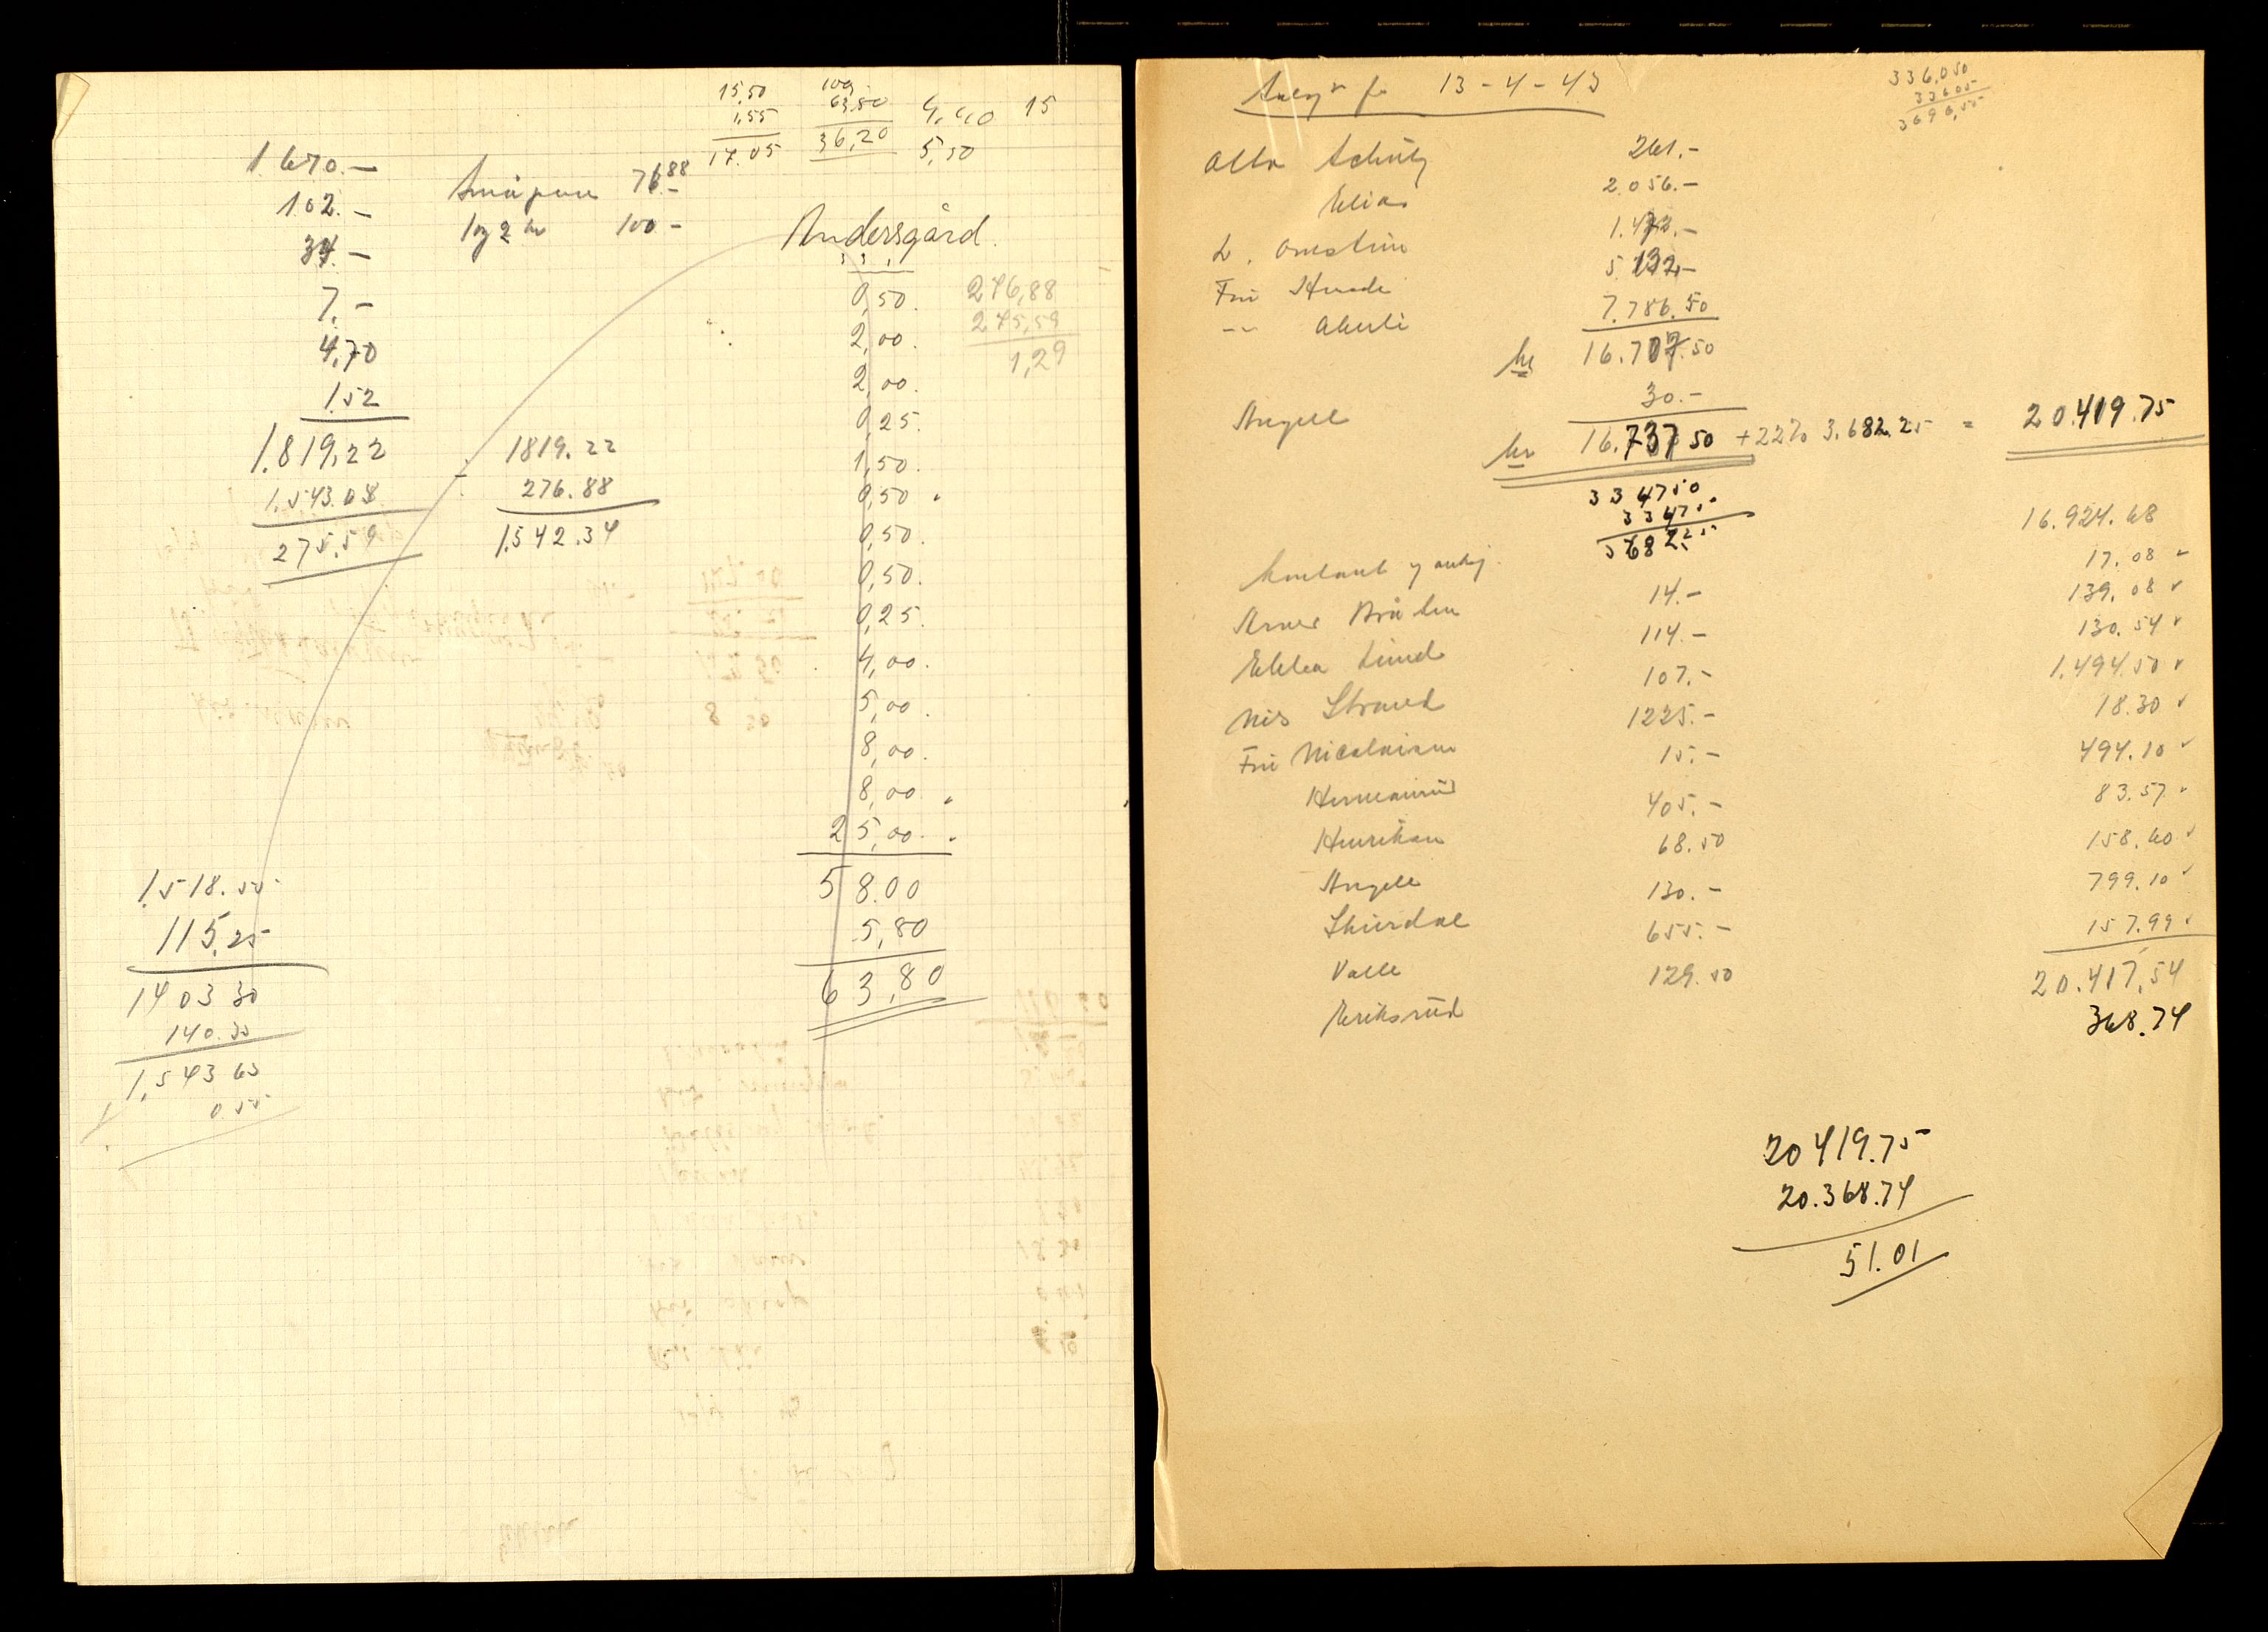 15,50
1,55
17.05
100,
63.80
36,20
4,40 15
5,50
1 670.—
102.—
34.—
7.—
4,70
1.52
1.819,22
1.543.63
275.59
Småpene 76.88
1 og 2 kr 100 -
1819.22
276.88
1.542.34
Andersgård.
0,50.
2,00.
2,00.
0,25.
1,50.
0,50.
0,50.
0,50.
0,25.
4,00.
5,00.
8,00.
8,00.
25,00.
58.00
5,80
63,80
276,88
275,59
1,29
1.518.55
115,25
1403 30
140.33
1.543 63
0.55
13 - 4 - 43
336.050
33605
3696,55
Otto Schütz 261.-
Elias 2.056.-
L. Ornstein 1.472.-
Fru Hurde 5.132.-
-"- Aberle 7.786.50
kr 16.707.50
Angell 30.-
kr 16.737 50 + 22% 3.682.25 = 20.419.75
334750
33475
368225
Kontant og 16.924.68
Arne Bråten 14.- 17.08 v
Ebba Lund 114.- 139.08 v
Nils Strand 107.- 130.54 v
Fru Nicolaisen 1225.- 1.494.50 v
Hermanrud 15.- 18.30 v
Henriksen 405.- 494.10 v
Angell 68.50 83.57 v
Skurdal 130.- 158.60 v
Valle 655.- 799.10 v
Eriksrud 129.50 157.99 v
20.417,54
368.74
20 419.75
20.368.74
51.01